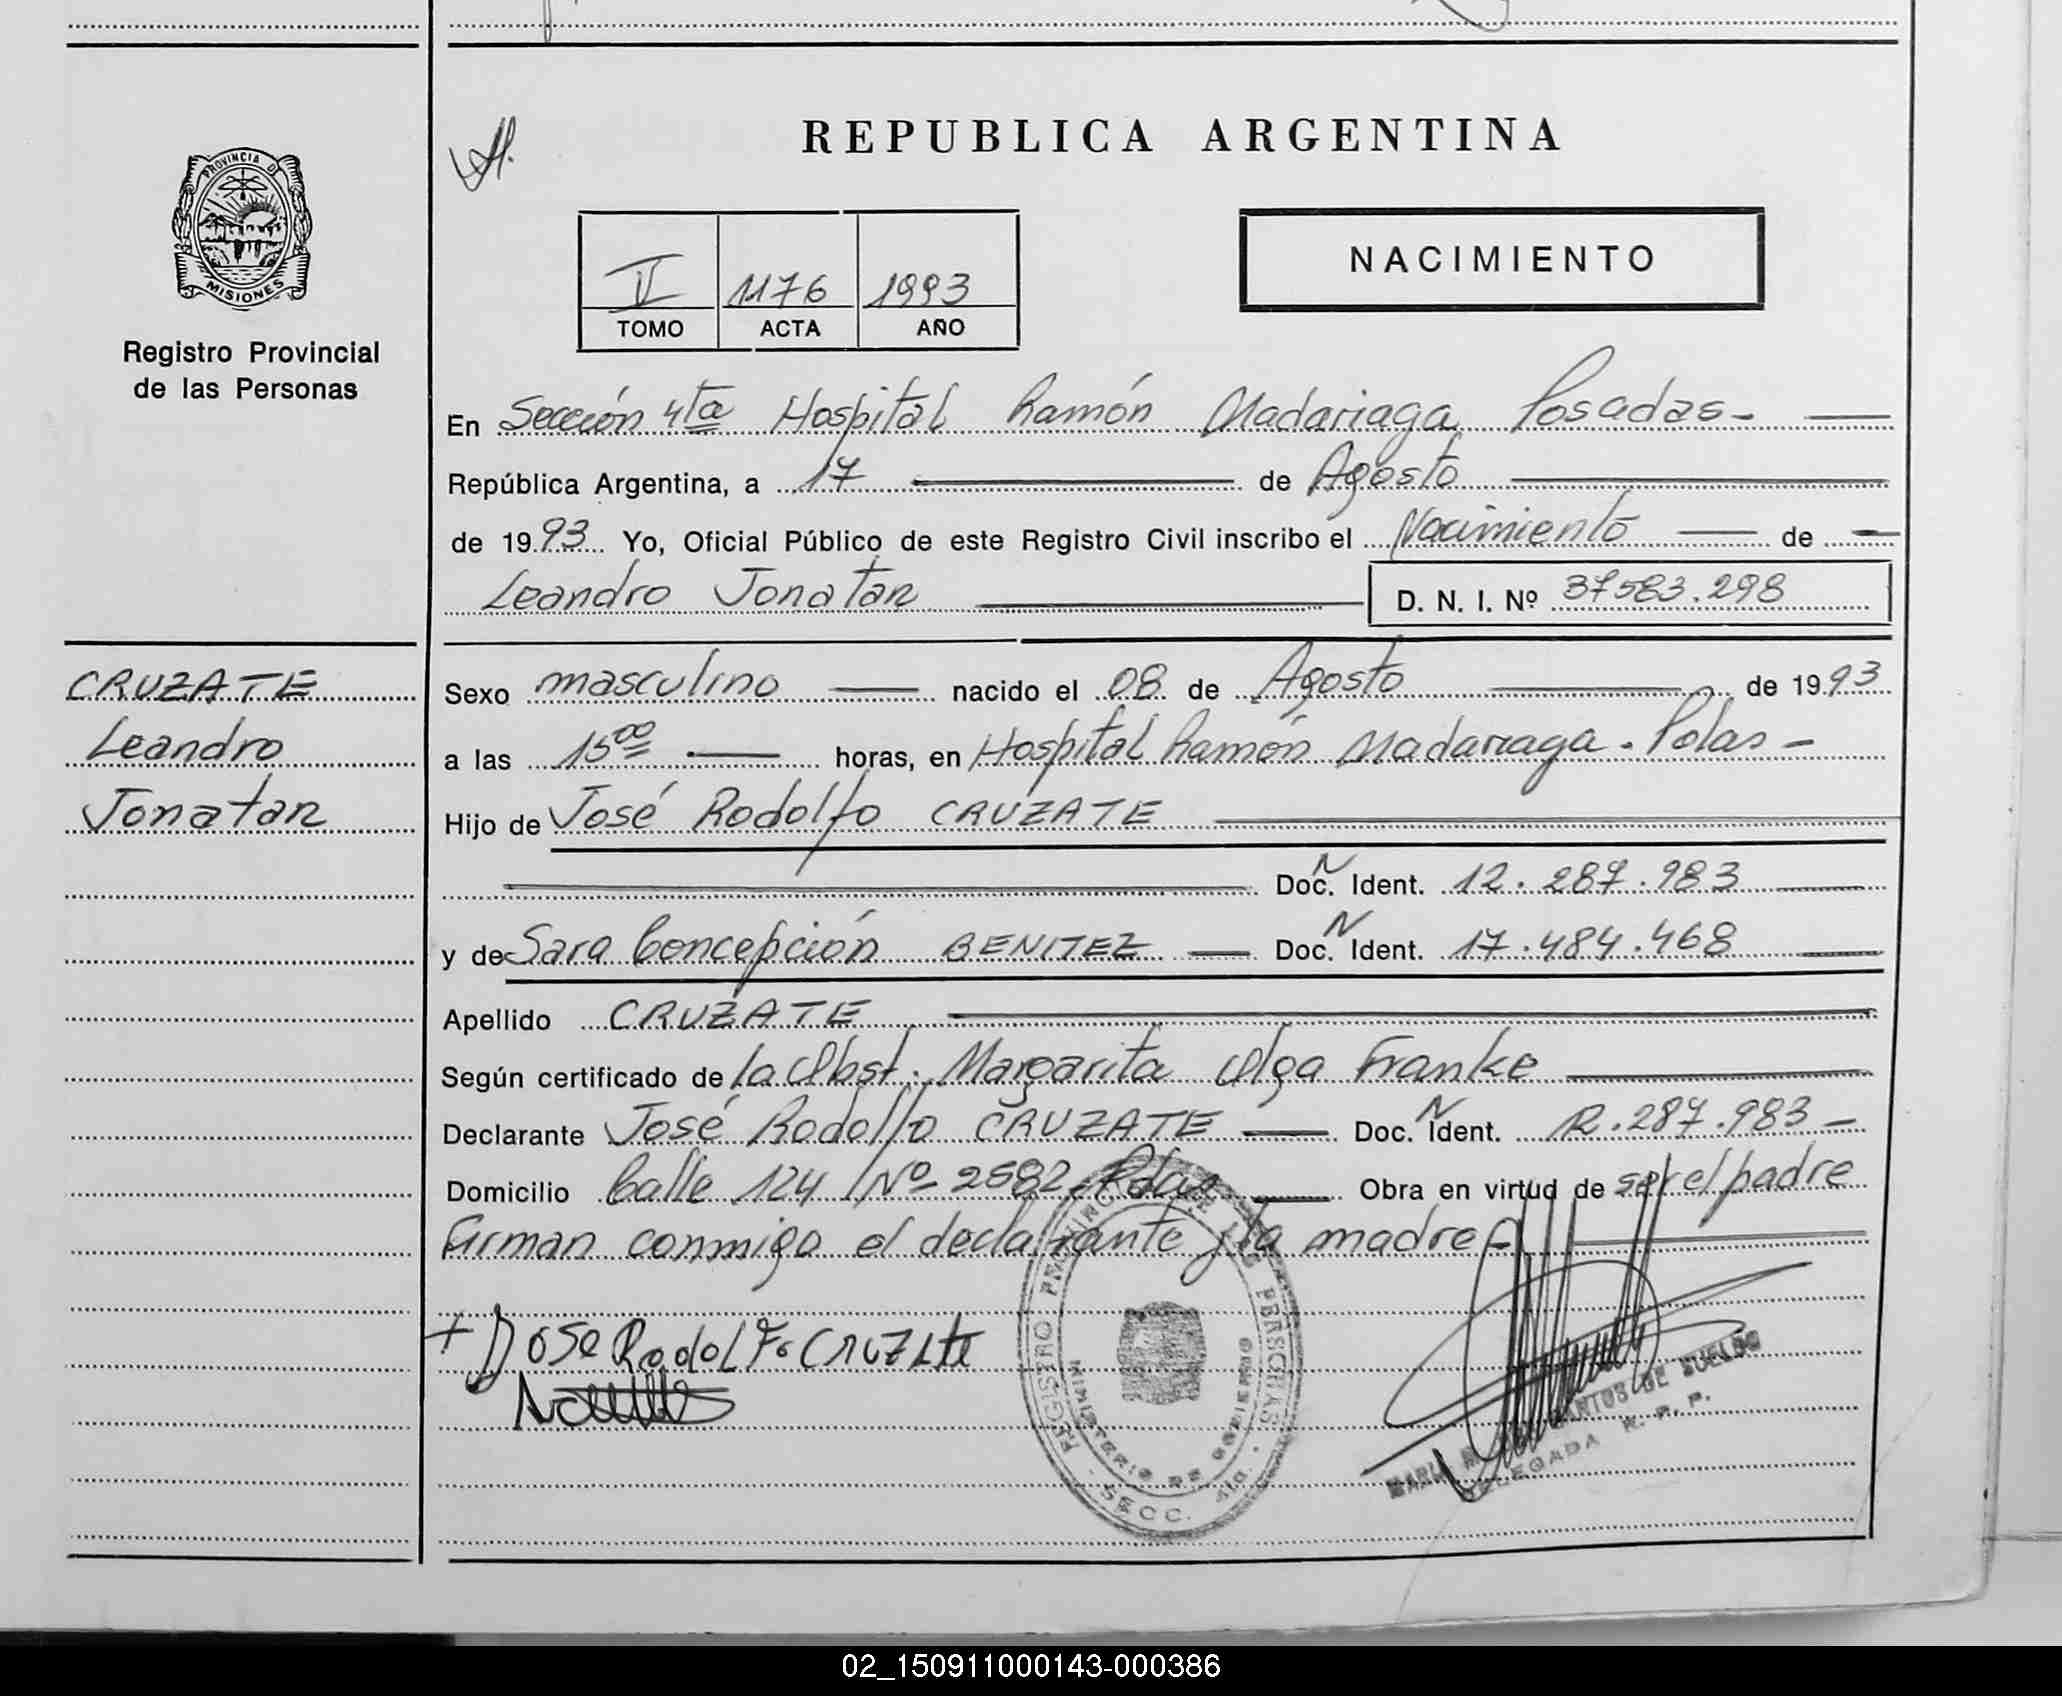 REPUBLICA ARGENTINA
PROVINCIA DE
MISIONES
Registro Provincial
de las Personas
NACIMIENTO
II 1176 1993
TOMO ACTA AÑO
En Sección 4ta Hospital Ramón Madariaga Posadas-
República Argentina, a 17 de Agosto
de 1993 Yo, Oficial Público de este Registro Civil inscribo el Nacimiento de
Leandro Jonatan D. N. I. Nº 37583.298
CRUZATE
Leandro
Jonatan
Sexo masculino nacido el 08 de Agosto de 1993
a las 15 00 horas, en Hospital Ramón Madariaga. Pdas-
Hijo de José Rodolfo CRUZATE
Doc. N Ident. 12.287.983
y de Sara Concepción BENITEZ Doc. N Ident. 17.484.468
Apellido CRUZATE
Según certificado de la Obst. Margarita Olga Franke
Declarante José Rodolfo CRUZATE Doc. N Ident. 12.287.983-
Domicilio Calle 124 Nº 2582 Pdas Obra en virtud de ser el padre
Firman conmigo el declarante y la madre
+ Jose Rodolfo CRUZAte
REGISTRO PROVINCIAL DE LAS PERSONAS
MINISTERIO DE GOBIERNO
SECC. 4ta.
SANTOS DE SUELDO
DELEGADA R. P. P.
02_150911000143-000386